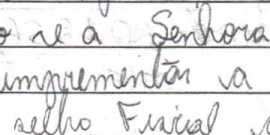 o se a Senhora
umprementar a
selho Fiscal